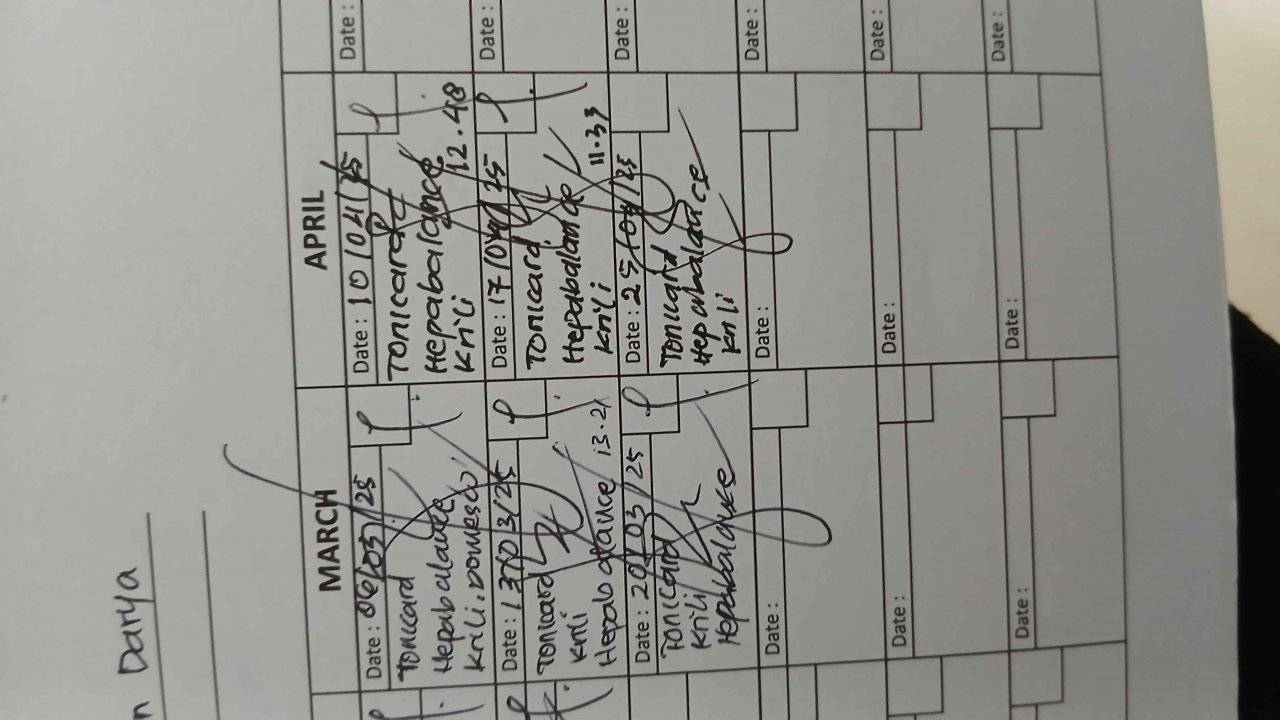 n Darya
MARCH
APRIL
Date : 06/03/25
Tonicard
Hepabalance
Krili. Domesco
Date : 13/03/25
Tonicard
Krili
Hepabalance 13.21
Date : 20/03/25
Tonicard
Krili
Hepabalance
Date :
Date :
Date :
Date : 10/04/25
Tonicard
Hepabalance
Krili 12.48
Date : 17/04/25
Tonicard
Hepabalance
Krili 11.33
Date : 25/04/25
Tonicard
Hepabalance
Krili
Date :
Date :
Date :
Date :
Date :
Date :
Date :
Date :
Date :